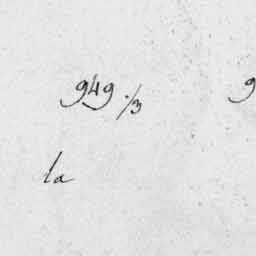 949./3 9
la